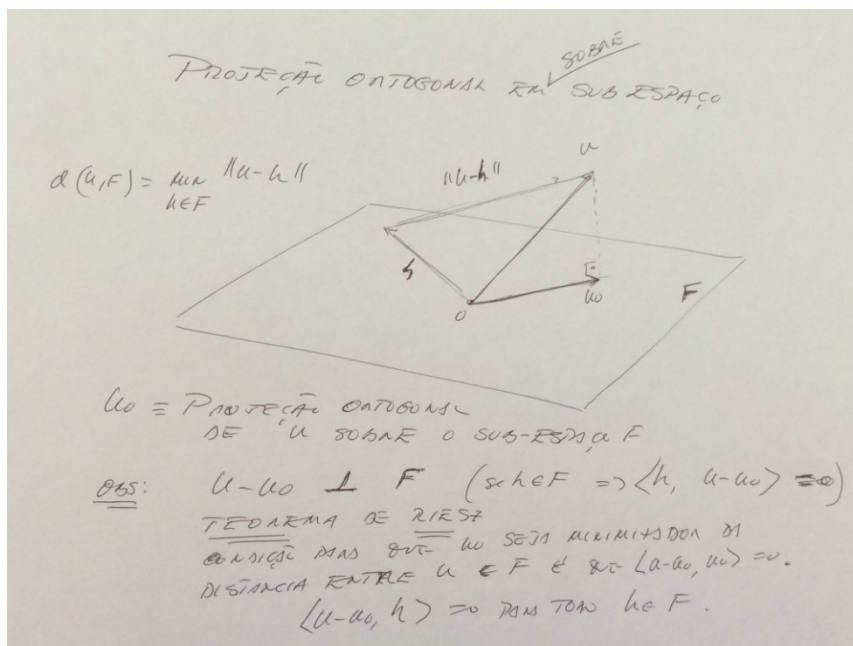 SOBRE
PROJEÇÃO ORTOGONAL EM SUBESPAÇO
d(u,F) = min ||u-h||
h∈F
||u-h||
u
h
O
u₀
F
u₀ ≡ PROJEÇÃO ORTOGONAL
DE u SOBRE O SUB-ESPAÇO F
OBS: u-u₀ ⊥ F (se h∈F => ⟨h, u-u₀⟩ =0)
TEOREMA DE RIESZ
CONDIÇÃO PARA QUE u₀ SEJA MINIMIZADOR DA
DISTANCIA ENTRE u E F É QUE ⟨u-u₀, u₀⟩ =0.
⟨u-u₀, h⟩ =0 PARA TODO h∈F.